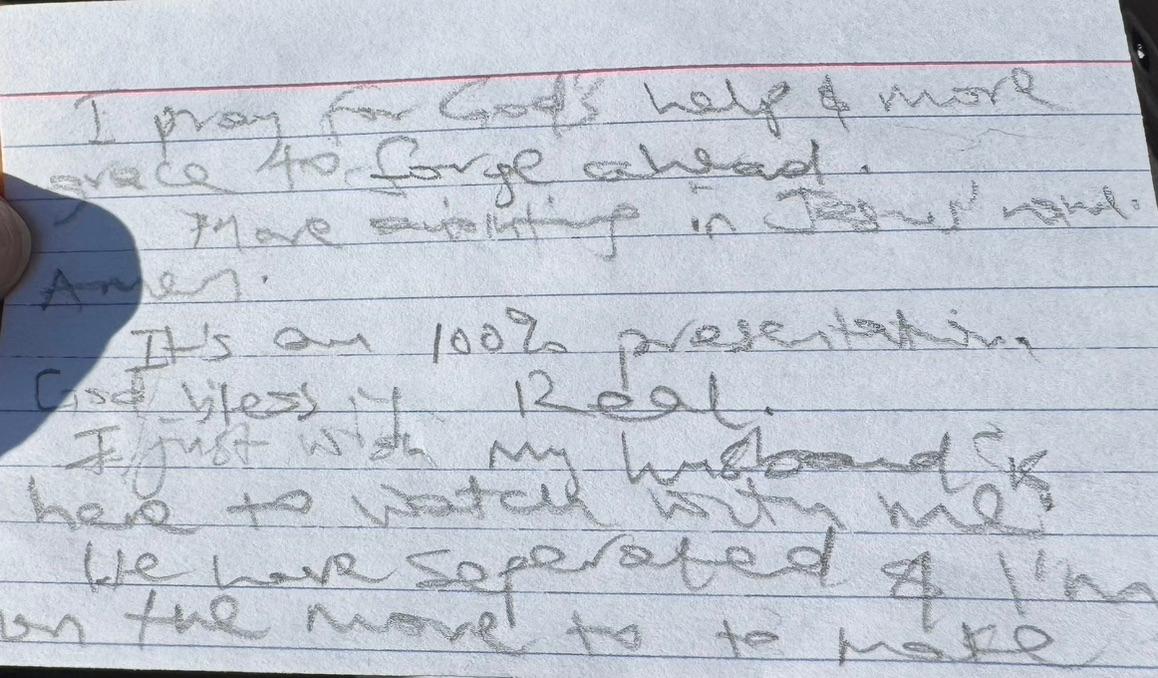 I pray for God's help & more
grace to forge ahead.
More anointing in Jesus' name.
Amen.
It's an 100% presentation
God bless it Real.
I just wish my husband is
here to watch with me.
We have seperated & I'm
on the move to to make